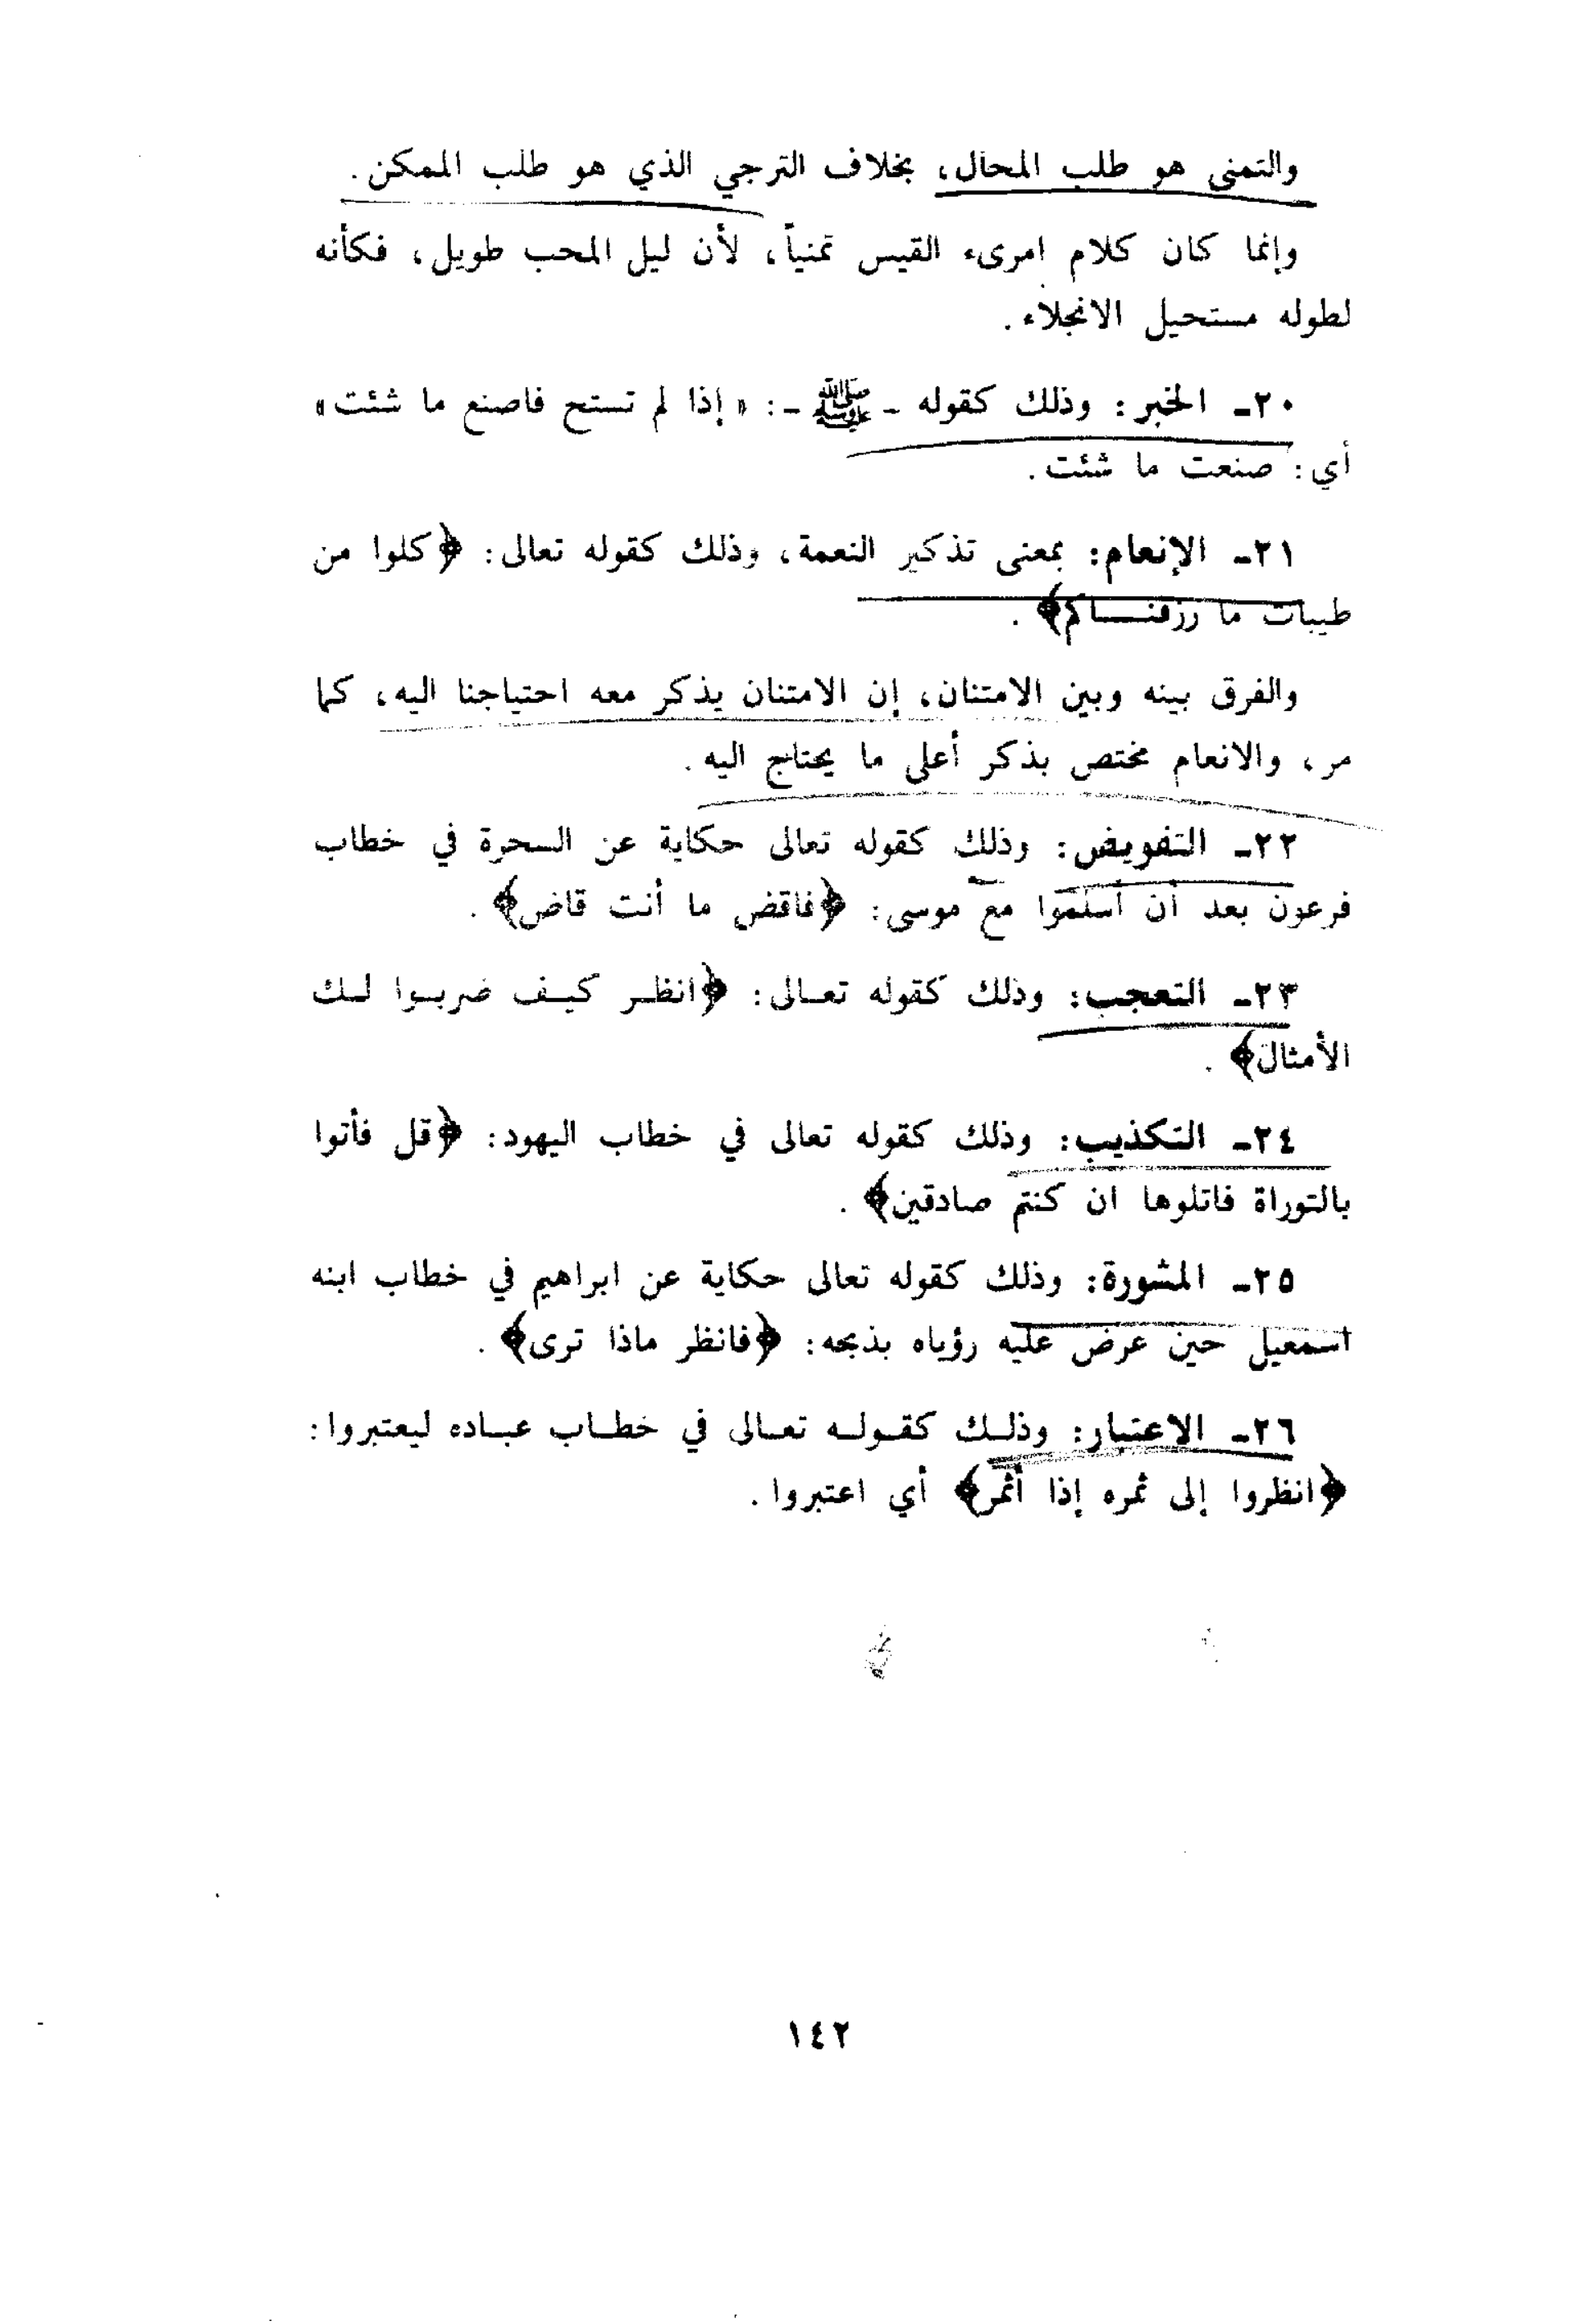 والتمنى هو طلب المحال، بخلاف الترجي الذي هو طلب الممكن.
وإنما كان كلام امرىء القيس تمنياً، لأن ليل المحب طويل، فكأنه
لطوله مستحيل الانجلاء.
٢٠ـ الخبر: وذلك كقوله ـ ﷺ ـ: «إذا لم تستح فاصنع ما شئت»
أي: صنعت ما شئت.
٢١ـ الإنعام: بمعنى تذكير النعمة، وذلك كقوله تعالى: ﴿كلوا من
طيبات ما رزقنـــاكم﴾.
والفرق بينه وبين الامتنان، إن الامتنان يذكر معه احتياجنا اليه، كما
مر، والانعام مختص بذكر أعلى ما يحتاج اليه.
٢٢ـ التفويض: وذلك كقوله تعالى حكاية عن السحرة في خطاب
فرعون بعد أن أسلموا مع موسى: ﴿فاقض ما أنت قاض﴾.
٢٣ـ التعجب: وذلك كقوله تعـالى: ﴿انظـر كيـف ضربـوا لـك
الأمثال﴾.
٢٤ـ التكذيب: وذلك كقوله تعالى في خطاب اليهود: ﴿قل فأتوا
بالتوراة فاتلوها ان كنتم صادقين﴾.
٢٥ـ المشورة: وذلك كقوله تعالى حكاية عن ابراهيم في خطاب ابنه
اسمعيل حين عرض عليه رؤياه بذبحه: ﴿فانظر ماذا ترى﴾.
٢٦ـ الاعتبار: وذلـك كقـولـه تعـالى في خطـاب عبـاده ليعتبروا:
﴿انظروا إلى ثمره إذا أثمر﴾ أي اعتبروا.
١٤٢